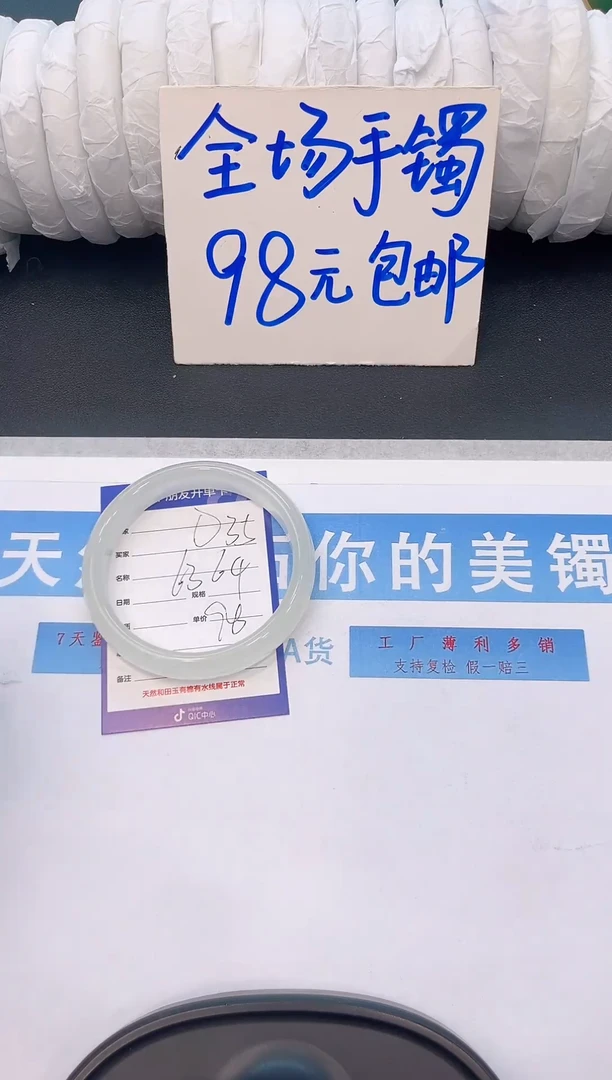 全场手镯
98元包邮
朋友开单卡
D35
买家
名称 63 64
日期 规格
单价 98
备注
天然和田玉有棉有水线属于正常
QIC中心
天 你的美镯
7天鉴 A货
工厂薄利多销
支持复检 假一赔三